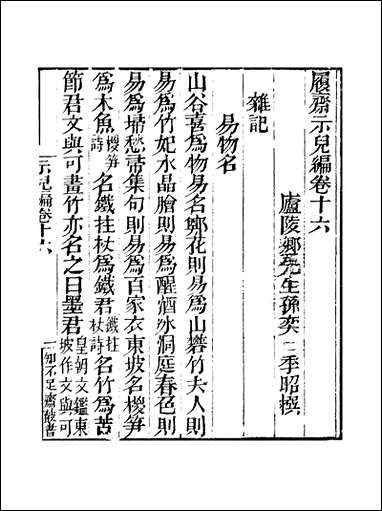 履齋示兒編卷十六
廬陵鄉先生孫奕季昭撰
雜記
易物名
山谷喜爲物易名鄭花則易爲山礬竹夫人則
易爲竹妃水晶膾則易爲醒酒冰洞庭春色則
易爲埽愁帚集句則易爲百家衣東坡名椶笋
爲木魚椶笋詩名鐵拄杖爲鐵君鐵拄杖詩名竹爲苦
節君文與可畫竹亦名之曰墨君皇朝文鑑東坡作文與可
示兒編卷十六
一
知不足齋叢書